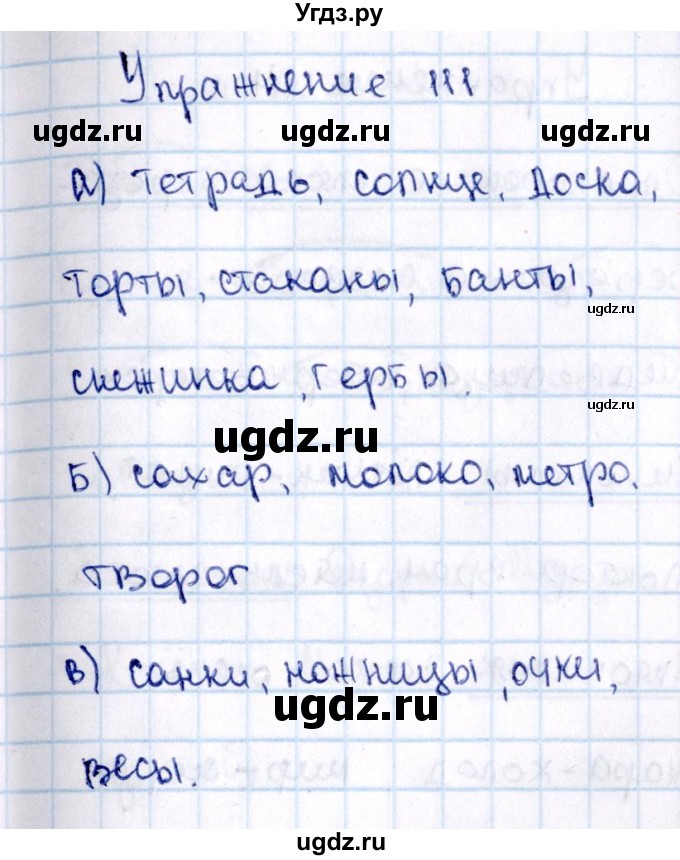 Угдз.ру
Упражнение 111
ugdz.ru ugdz.ru ugdz.ru
а) тетрадь, солнце, доска,
торты, стаканы, банты,
ugdz.ru
снежинка, гербы.
ugdz.ru
ugdz.ru
Б) сахар, молоко, метро,
творог
в) санки, ножницы, очки,
ugdz.ru ugdz.ru
весы.
ugdz.ru